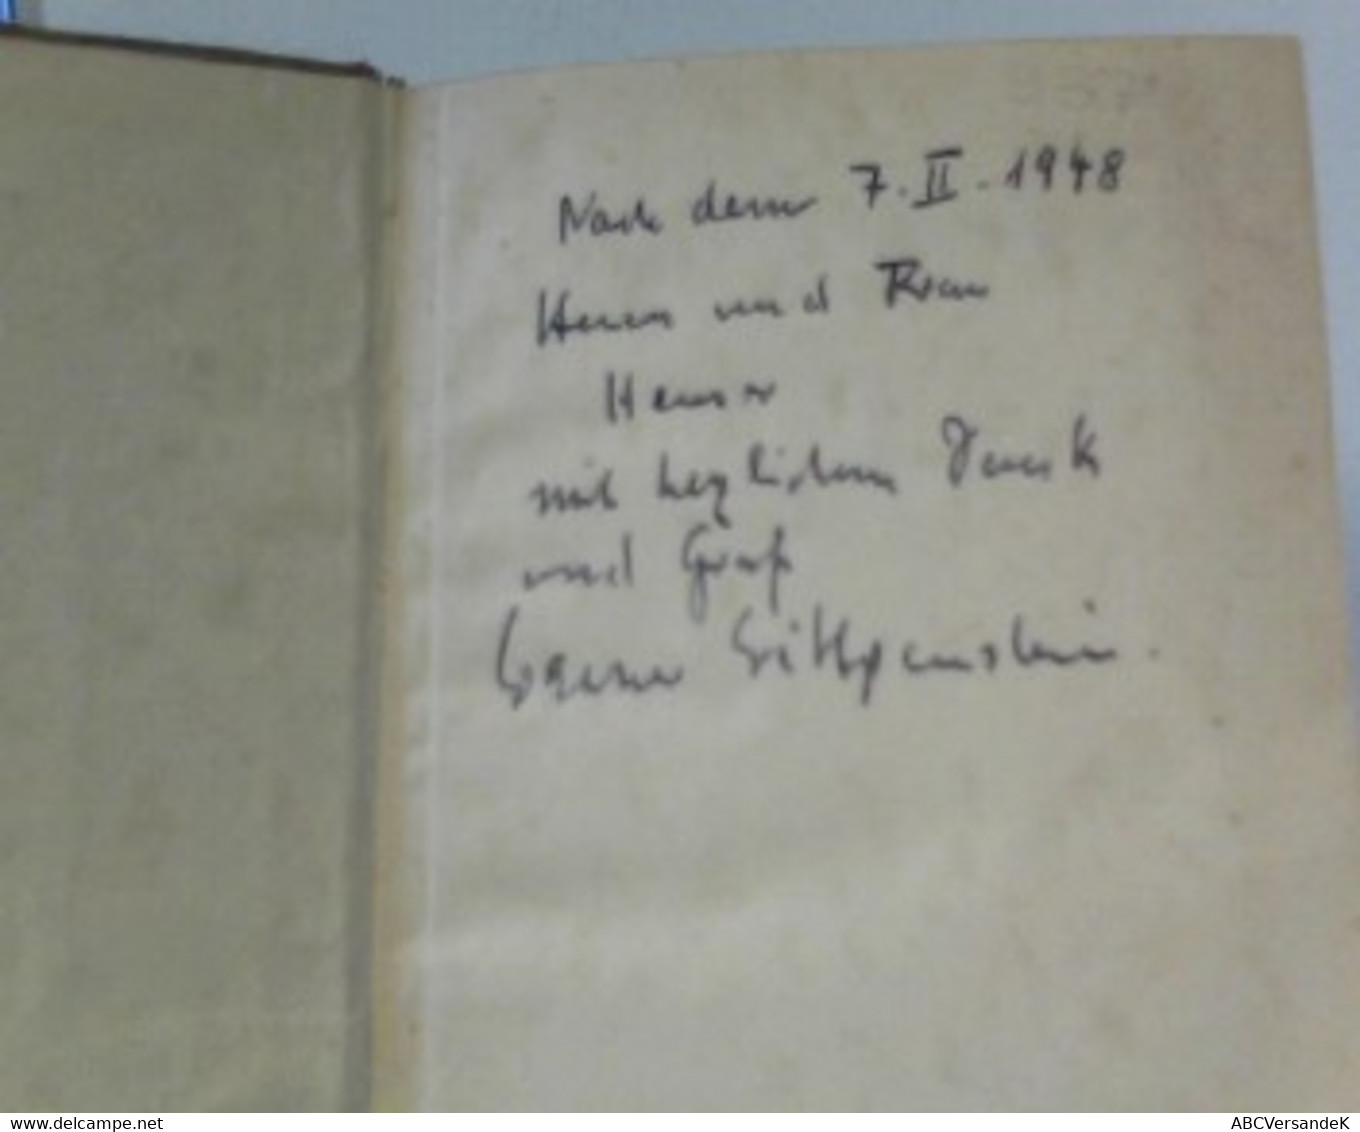 Nach dem 7. II. 1948
Herrn und Frau
mit herzlichem Dank
und Gruß
Werner Wittgenstein.
www.delcampe.net
ABCVersandeK